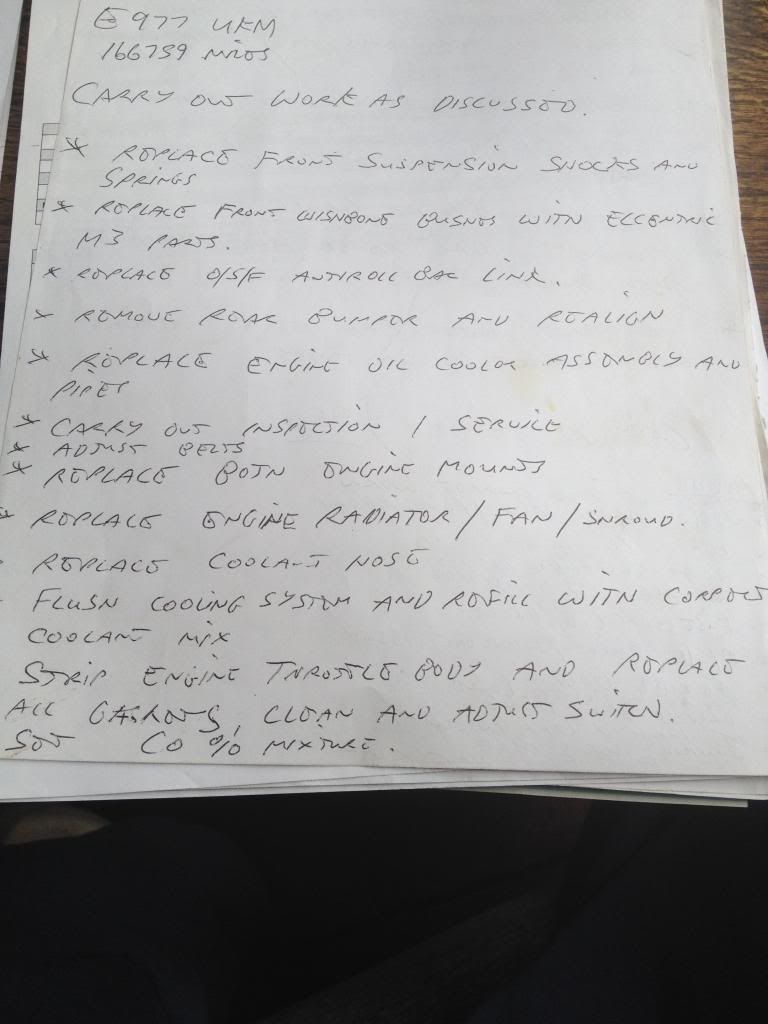 E977 UKM
166759 MILES
CARRY OUT WORK AS DISCUSSED.
* REPLACE FRONT SUSPENSION SHOCKS AND
SPRINGS
* REPLACE FRONT WISHBONE BUSHES WITH ECCENTRIC
M3 PARTS.
* REPLACE O/S/F ANTIROLL BAR LINK.
* REMOVE REAR BUMPER AND REALIGN
* REPLACE ENGINE OIL COOLER ASSEMBLY AND
PIPES
* CARRY OUT INSPECTION / SERVICE
* ADJUST BELTS
* REPLACE BOTH ENGINE MOUNTS
* REPLACE ENGINE RADIATOR / FAN / SHROUD.
REPLACE COOLANT HOSE
FLUSH COOLING SYSTEM AND REFILL WITH CORRECT
COOLANT MIX
STRIP ENGINE THROTTLE BODY AND REPLACE
ALL GASKETS, CLEAN AND ADJUST SWITCH.
SET CO % MIXTURE.